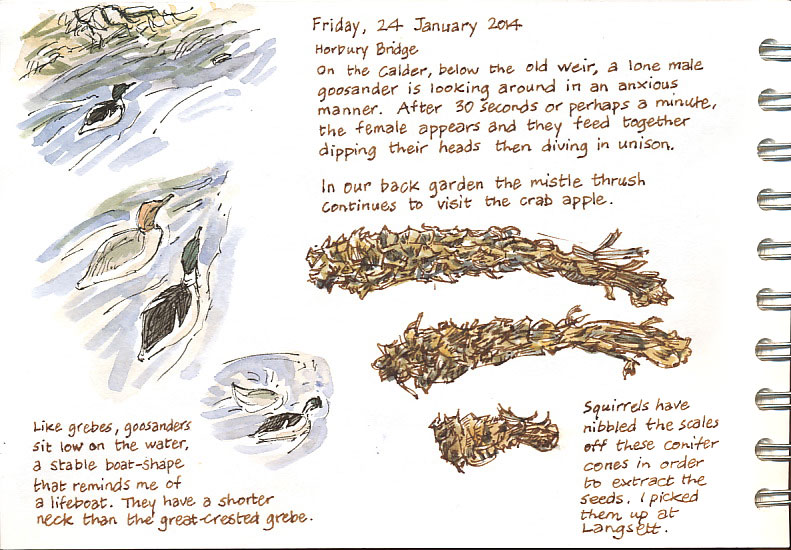 Friday, 24 January 2014
Horbury Bridge
On the Calder, below the old weir, a lone male
goosander is looking around in an anxious
manner. After 30 seconds or perhaps a minute,
the female appears and they feed together
dipping their heads then diving in unison.
In our back garden the mistle thrush
continues to visit the crab apple.
Like grebes, goosanders
sit low on the water,
a stable boat-shape
that reminds me of
a lifeboat. They have a shorter
neck than the great-crested grebe.
Squirrels have
nibbled the scales
off these conifer
cones in order
to extract the
seeds. I picked
them up at
Langsett.